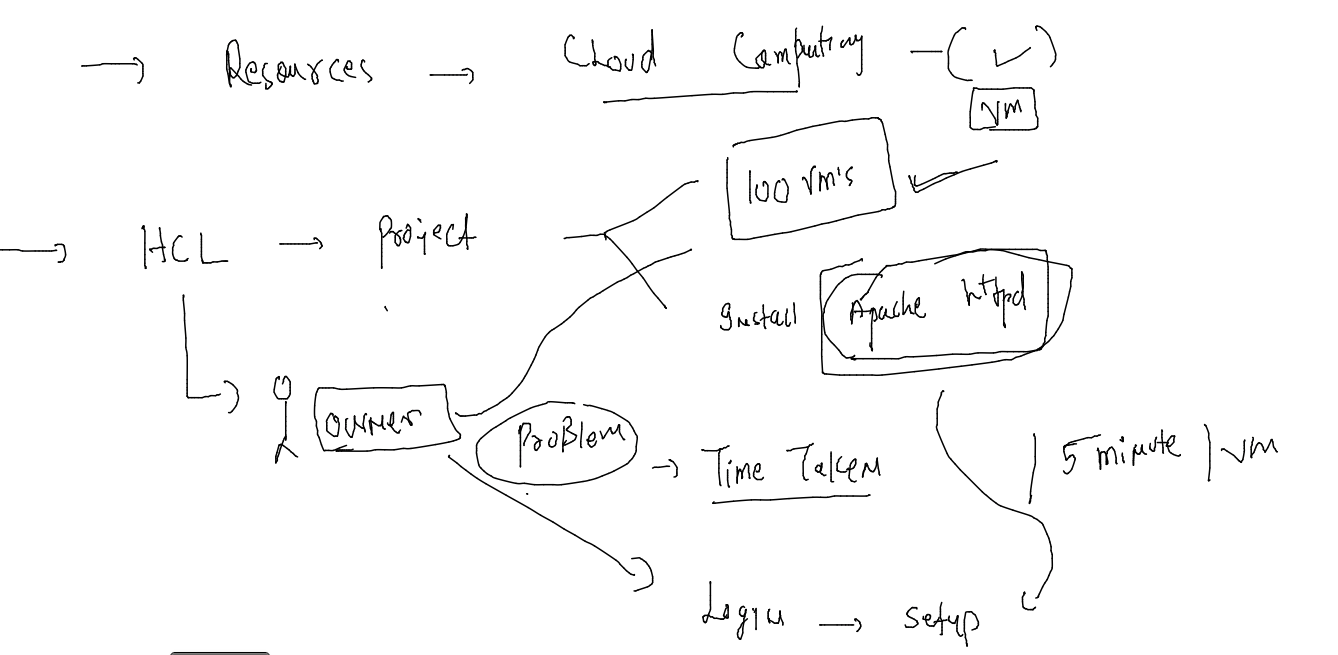 → Resources → Cloud Computing - (✓)
VM
100 VM's ✓
→ HCL → Project
Install Apache httpd
owner
Problem → Time Taken
5 minute | VM
Login → Setup